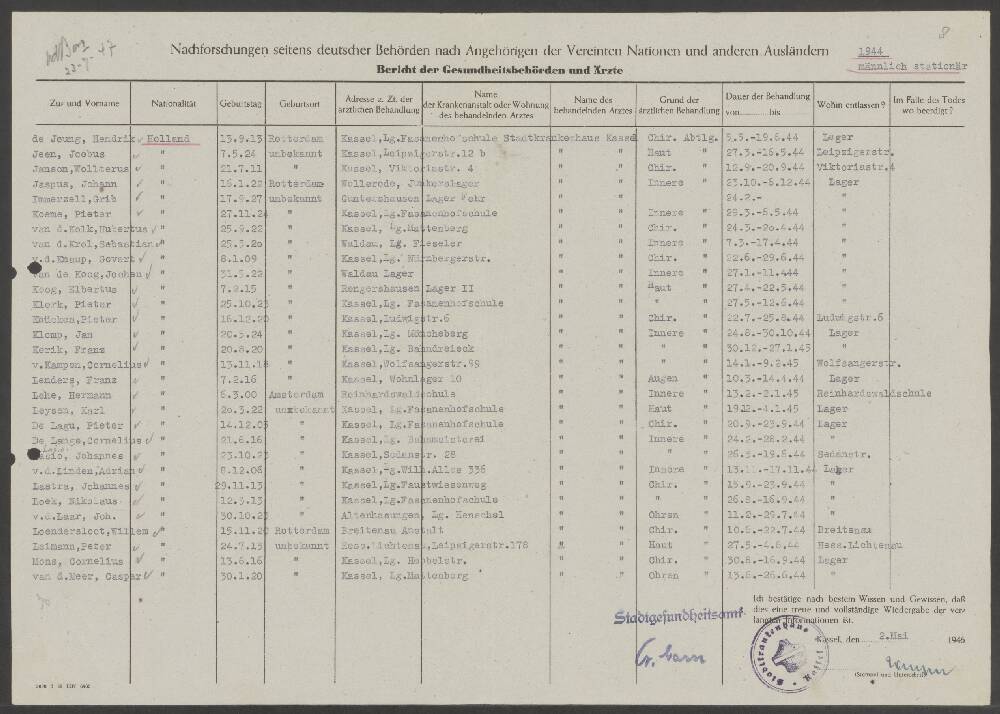 8
47
Nachforschungen seitens deutscher Behörden nach Angehörigen der Vereinten Nationen und anderen Ausländern
1944
männlich stationär
Bericht der Gesundheitsbehörden und Ärzte
Zu- und Vorname Nationalität Geburtstag Geburtsort Adresse z. Zt. der ärztlichen Behandlung Name der Krankenanstalt oder Wohnung des behandelnden Arztes Name des behandelnden Arztes Grund der ärztlichen Behandlung Dauer der Behandlung von bis Wohin entlassen? Im Falle des Todes wo beerdigt?
de Jeung, Hendrik Holland 13.9.13 Rotterdam Kassel,Lg.Fasanenhofschule Stadtkrankenhaus Kassel Chir. Abtlg. 5.5.-19.6.44 Lager
Jeen, Jocbus " 7.5.24 unbekannt Kassel,Leipzigerstr.12 b " " Haut " 27.3.-16.5.44 Leipzigerstr.
Janson,Wollterus " 21.7.11 " Kassel, Viktoriastr. 4 " " Chir. " 12.9.-20.9.44 Viktoriastr.4
Jaspus, Johann " 16.1.22 Rotterdam Wollerode, Junkerslager " " Innere " 23.10.-6.12.44 Lager
Immerzell,Grib " 17.9.27 unbekannt Guntershausen Lager Wehr " " " 24.2.- "
Koeme, Pieter " 27.11.24 " Kassel,Lg.Fasanenhofschule " " Innere " 29.3.-6.5.44 "
van d.Kolk,Hubertus " 25.9.22 " Kassel, Lg.Mattenberg " " Chir. " 24.3.-20.4.44 "
van d.Krol,Sebastian " 25.3.20 " Waldau, Lg. Fieseler " " Innere " 7.3.-17.4.44 "
v.d.Knaup, Govart " 8.1.09 " Kassel,Lg. Nürnbergerstr. " " Chir. " 22.6.-29.6.44 "
van de Koog,Jochen " 31.5.22 " Waldau Lager " " Innere " 27.1.-11.444 "
Koog, Elbertus " 7.2.15 " Rengershausen Lager II " " Haut " 27.4.-22.5.44 "
Klerk, Pieter " 25.10.23 " Kassel,Lg. Fasanenhofschule " " " " 27.5.-12.6.44 "
Knücken,Pieter " 16.12.20 " Kassel,Ludwigstr.6 " " Chir. " 22.7.-25.8.44 Ludwigstr.6
Klomp, Jan " 20.5.24 " Kassel,Lg. Möncheberg " " Innere " 24.8.-30.10.44 Lager
Kerik, Franz " 20.8.20 " Kassel,Lg. Bahndreieck " " " " 30.12.-27.1.45 "
v.Kampen,Cornelius " 13.11.18 " Kassel,Wolfsangerstr.99 " " " " 14.1.-9.2.45 Wolfsangerstr.
Lenders, Franz " 7.2.16 " Kassel, Wohnlager 10 " " Augen " 10.3.-14.4.44 Lager
Leke, Hermann " 6.3.00 Amsterdam Reinhardswaldschule " " Innere " 13.2.-2.1.45 Reinhardswaldschule
Leysen, Karl " 20.3.22 unbekannt Kassel, Lg.Fasanenhofschule " " Haut " 19.12.-4.1.45 Lager
De Lagu, Pieter " 14.12.03 " Kassel, Lg.Fasanenhofschule " " Chir. " 20.9.-23.9.44 Lager
De Lange,Cornelius " 21.6.16 " Kassel,Lg. Bahnmeisterei " " Innere " 24.2.-28.2.44 "
Johannes " 23.10.23 " Kassel,Sedanstr. 28 " " " " 26.5.-19.6.44 Sedanstr.
v.d.Linden,Adrian " 8.12.06 " Kassel,Lg.Wilh.Allee 336 " " Innere " 13.11.-17.11.44 Lager
Lastra, Johannes " 29.11.13 " Kassel,Lg.Faustwiesenweg " " Chir. " 15.9.-23.9.44 "
Loek, Nikolaus " 12.3.13 " Kassel,Lg.Fasanenhofschule " " " " 26.8.-16.9.44 "
v.d.Laar, Joh. " 30.10.23 " Altenbaunngen, Lg. Henschel " " Ohren " 11.2.-29.7.44 "
Loendersloot,Willem " 15.11.20 Rotterdam Breitenau Anstalt " " Chir. " 10.6.-22.7.44 Breitenau
Leimann,Peter " 24.7.15 unbekannt Hess.Lichtenau,Leipzigerstr.178 " " Haut " 27.5.-4.6.44 Hess.Lichtenau
Mons, Cornelius " 13.6.16 " Kassel,Lg. Hebbelstr. " " Chir. " 30.8.-16.9.44 Lager
van d.Meer, Caspar " 30.1.20 " Kassel, Lg.Mattenberg " " Ohren " 13.6.-26.6.44 "
30
Ich bestätige nach bestem Wissen und Gewissen, daß
dies eine treue und vollständige Wiedergabe der ver-
langten Informationen ist.
Stadtgesundheitsamt
Kassel, den 2.Mai 1946
Stadtkrankenhaus Kassel
(Stempel und Unterschrift)